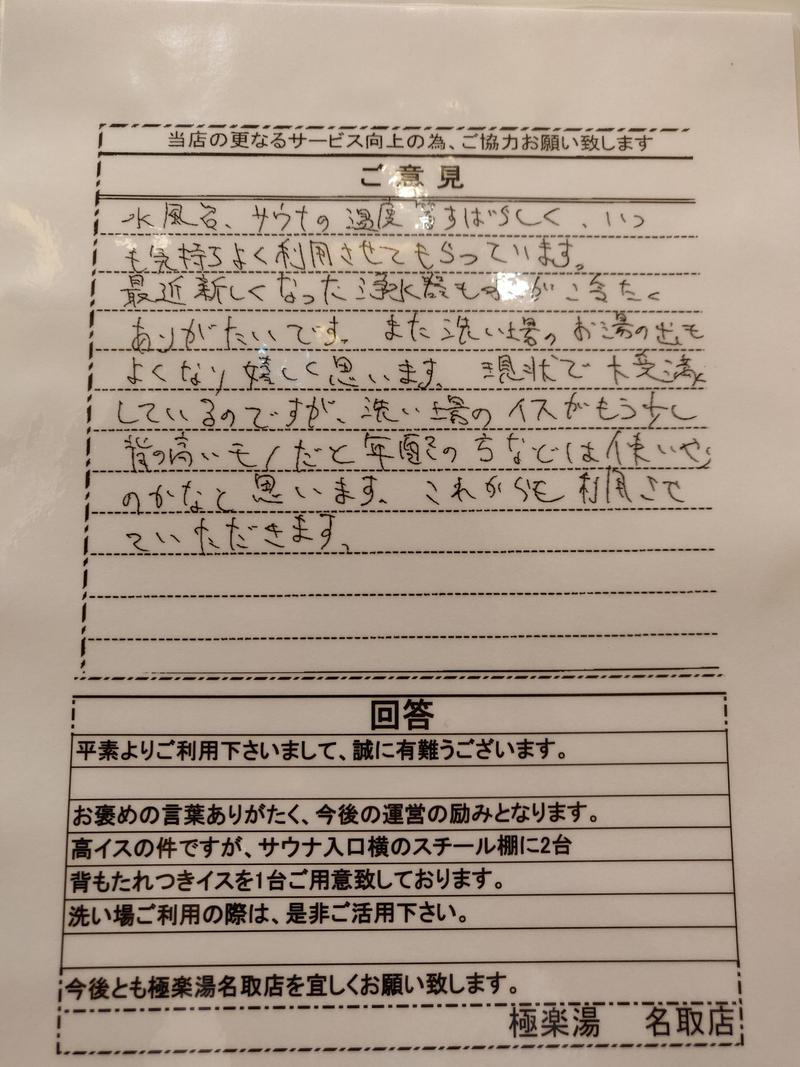 当店の更なるサービス向上の為、ご協力お願い致します
ご意見
水風呂、サウナの温度等すばらしく、いつ
も気持ちよく利用させてもらっています。
最近新しくなった浄水器も が冷たく
ありがたいです。また洗い場のお湯の出も
よくなり嬉しく思います。現状で大変満足
しているのですが、洗い場のイスがもう少し
背の高いモノだと年配の方などは使いやす
のかなと思います。これからも利用させ
ていただきます。
回答
平素よりご利用下さいまして、誠に有難うございます。
お褒めの言葉ありがたく、今後の運営の励みとなります。
高イスの件ですが、サウナ入口横のスチール棚に2台
背もたれつきイスを1台ご用意致しております。
洗い場ご利用の際は、是非ご活用下さい。
今後とも極楽湯名取店を宜しくお願い致します。
極楽湯 名取店